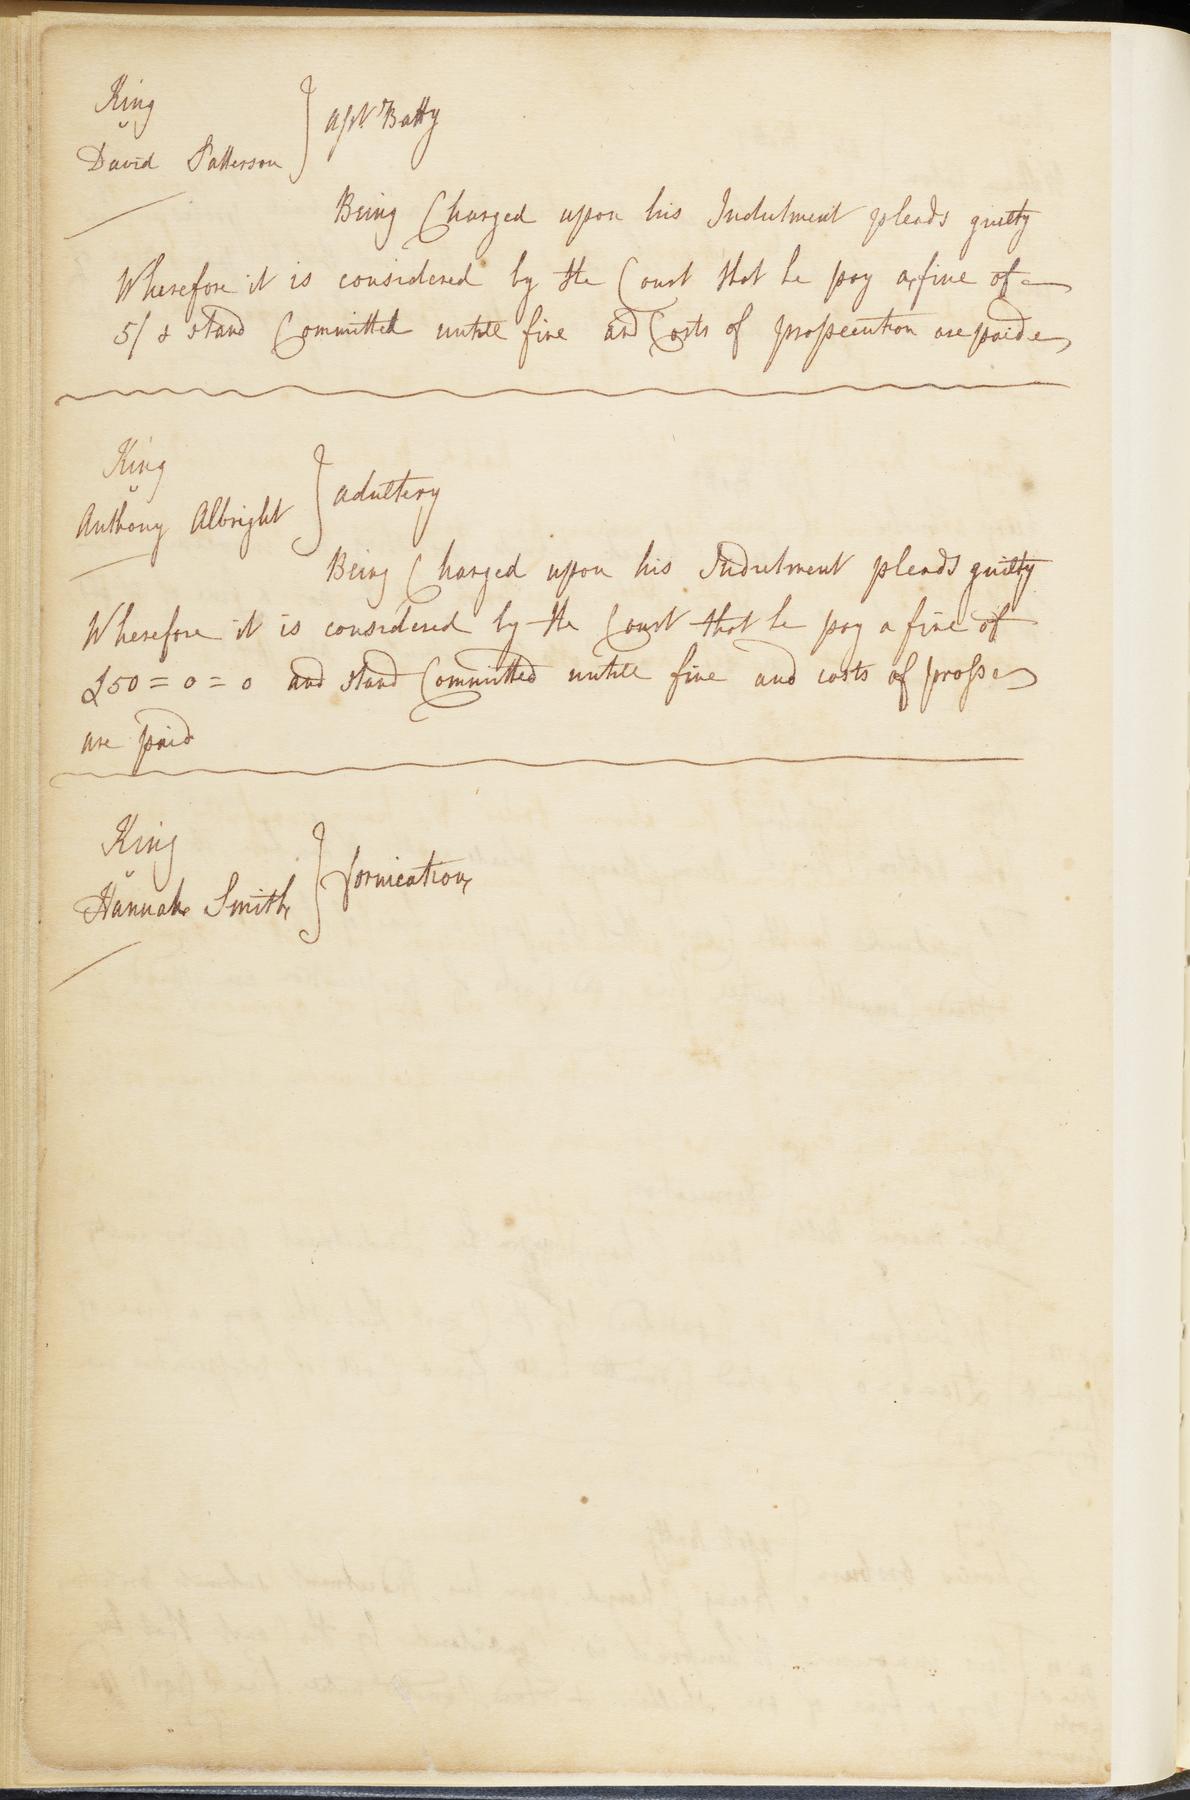 King
v
David Patterson } asst. Batty
Being Charged upon his Indictment pleads guilty
Wherefore it is considered by the Court that he pay a fine of
5/ & stand Committed untill fine and Costs of prossecution are paid
King
v
Anthony Albright } adultery
Being Charged upon his Indictment pleads guilty
Wherefore it is considered by the Court that he pay a fine of
£50 = 0 = 0 and stand Committed untill fine and costs of prosse
are paid
King
v
Hannah Smith } fornication